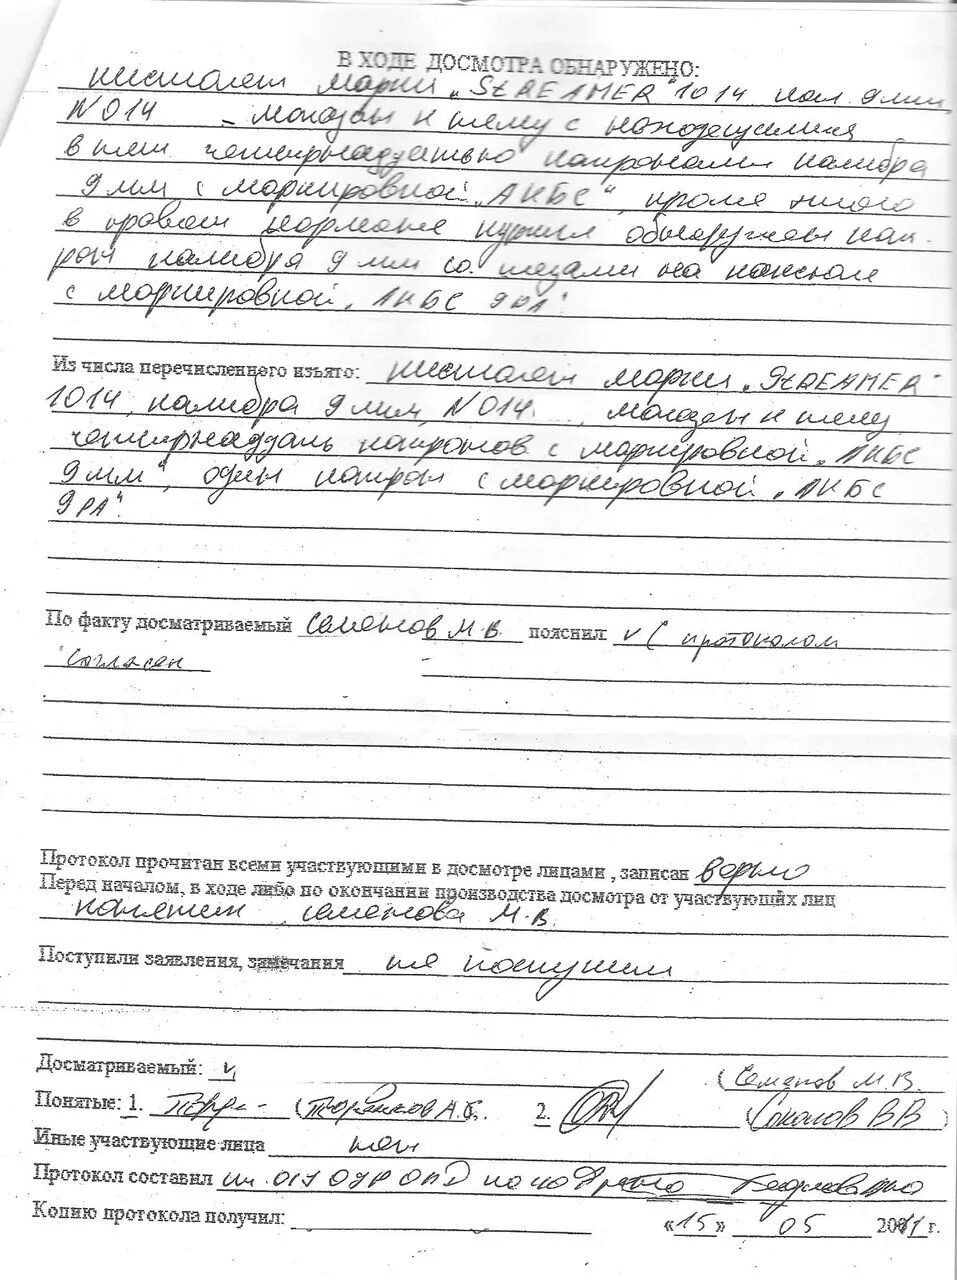 В ХОДЕ ДОСМОТРА ОБНАРУЖЕНО:
пистолет марки „STREAMER" 1014 кал. 9 мм
N 014 - магазин к нему с находящимися
в нем четырнадцатью патронами калибра
9 мм с маркировкой „АКБС", кроме того
в правом кармане куртки обнаружен пат-
рон калибра 9 мм со
с маркировкой „АКБС 9РА"
Из числа перечисленного изъято: пистолет марки „STREAMER"
1014, калибра 9 мм, N 014 , магазин к нему,
четырнадцать патронов с маркировкой „АКБС
9 мм", один патрон с маркировкой „АКБС
9РА".
По факту досматриваемый Семенов М.В. пояснил с протоколом
согласен
Протокол прочитан всеми участвующими в досмотре лицами , записан верно
Перед началом, в ходе либо по окончании производства досмотра от участвующих лиц
понятых Семенова М.В.
Поступили заявления, замечания не поступили
Досматриваемый: (Семенов М.В.
Понятые: 1. 2. (Соколов В В)
Иные участвующие лица нет
Протокол составил
Копию протокола получил: «15» 05 2011 г.